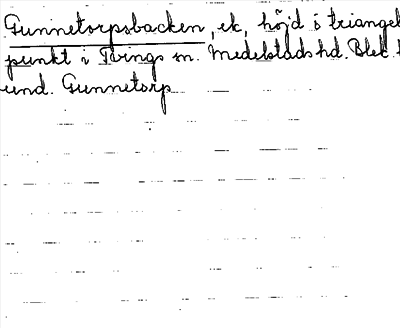 Gunnetorpsbacken, ek, höjd o triangel
punkt i Tvings sn. Medelstads hd. Blek.
und. Gunnetorp